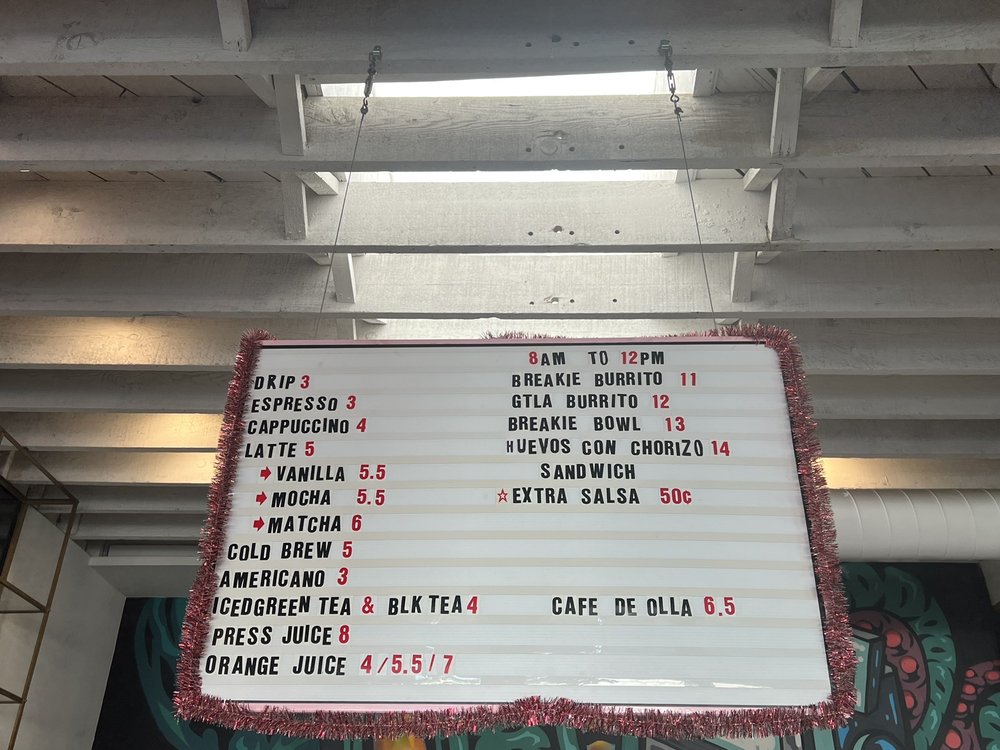 DRIP 3
ESPRESSO 3
CAPPUCCINO 4
LATTE 5
VANILLA 5.5
MOCHA 5.5
MATCHA 6
COLD BREW 5
AMERICANO 3
ICEDGREEN TEA & BLK TEA 4
PRESS JUICE 8
ORANGE JUICE 4/5.5/7
8AM TO 12PM
BREAKIE BURRITO 11
GTLA BURRITO 12
BREAKIE BOWL 13
HUEVOS CON CHORIZO 14
SANDWICH
☆EXTRA SALSA 50¢
CAFE DE OLLA 6.5